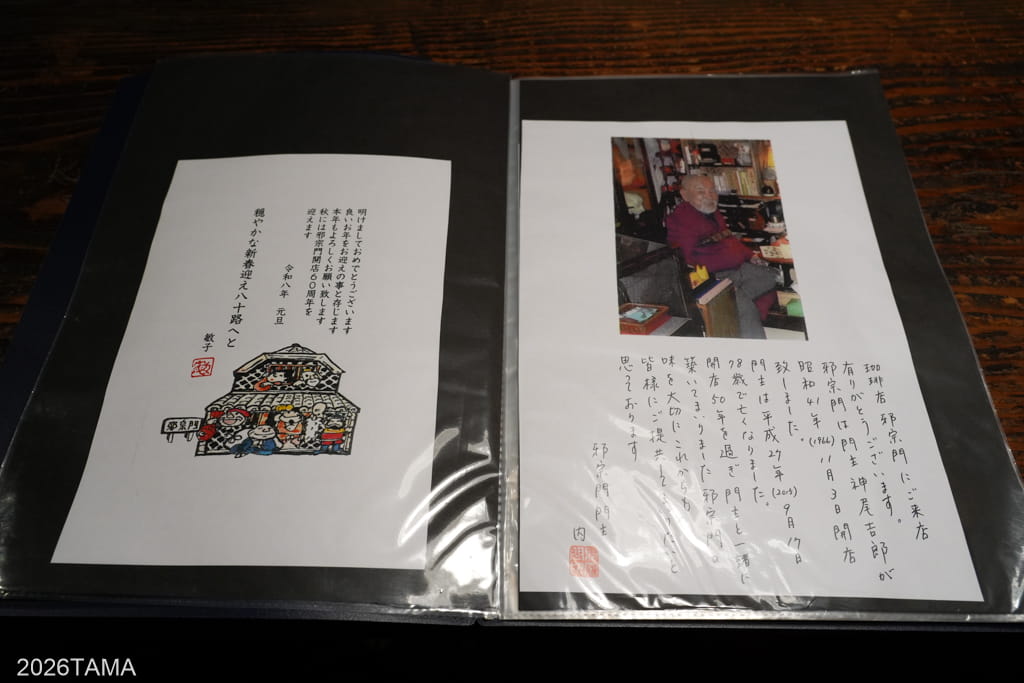 明けましておめでとうございます
良いお年をお迎えの事と存じます
本年もよろしくお願い致します
秋には邪宗門開店60周年を
迎えます
令和八年 元旦
穏やかな新春迎え八十路へと
敏子
邪宗門
珈琲店 邪宗門にご来店
有りがとうございます。
邪宗門は門主神尾吉郎が
昭和41年(1966)11月3日開店
致しました。
門主は平成27年(2015)9月17日
78歳で亡くなりました。
開店50年を過ぎ門主と一緒に
築いてまいりました邪宗門の
味を大切にこれからも
皆様にご提供してまいりたいと
思っております
邪宗門門主
内
2026TAMA